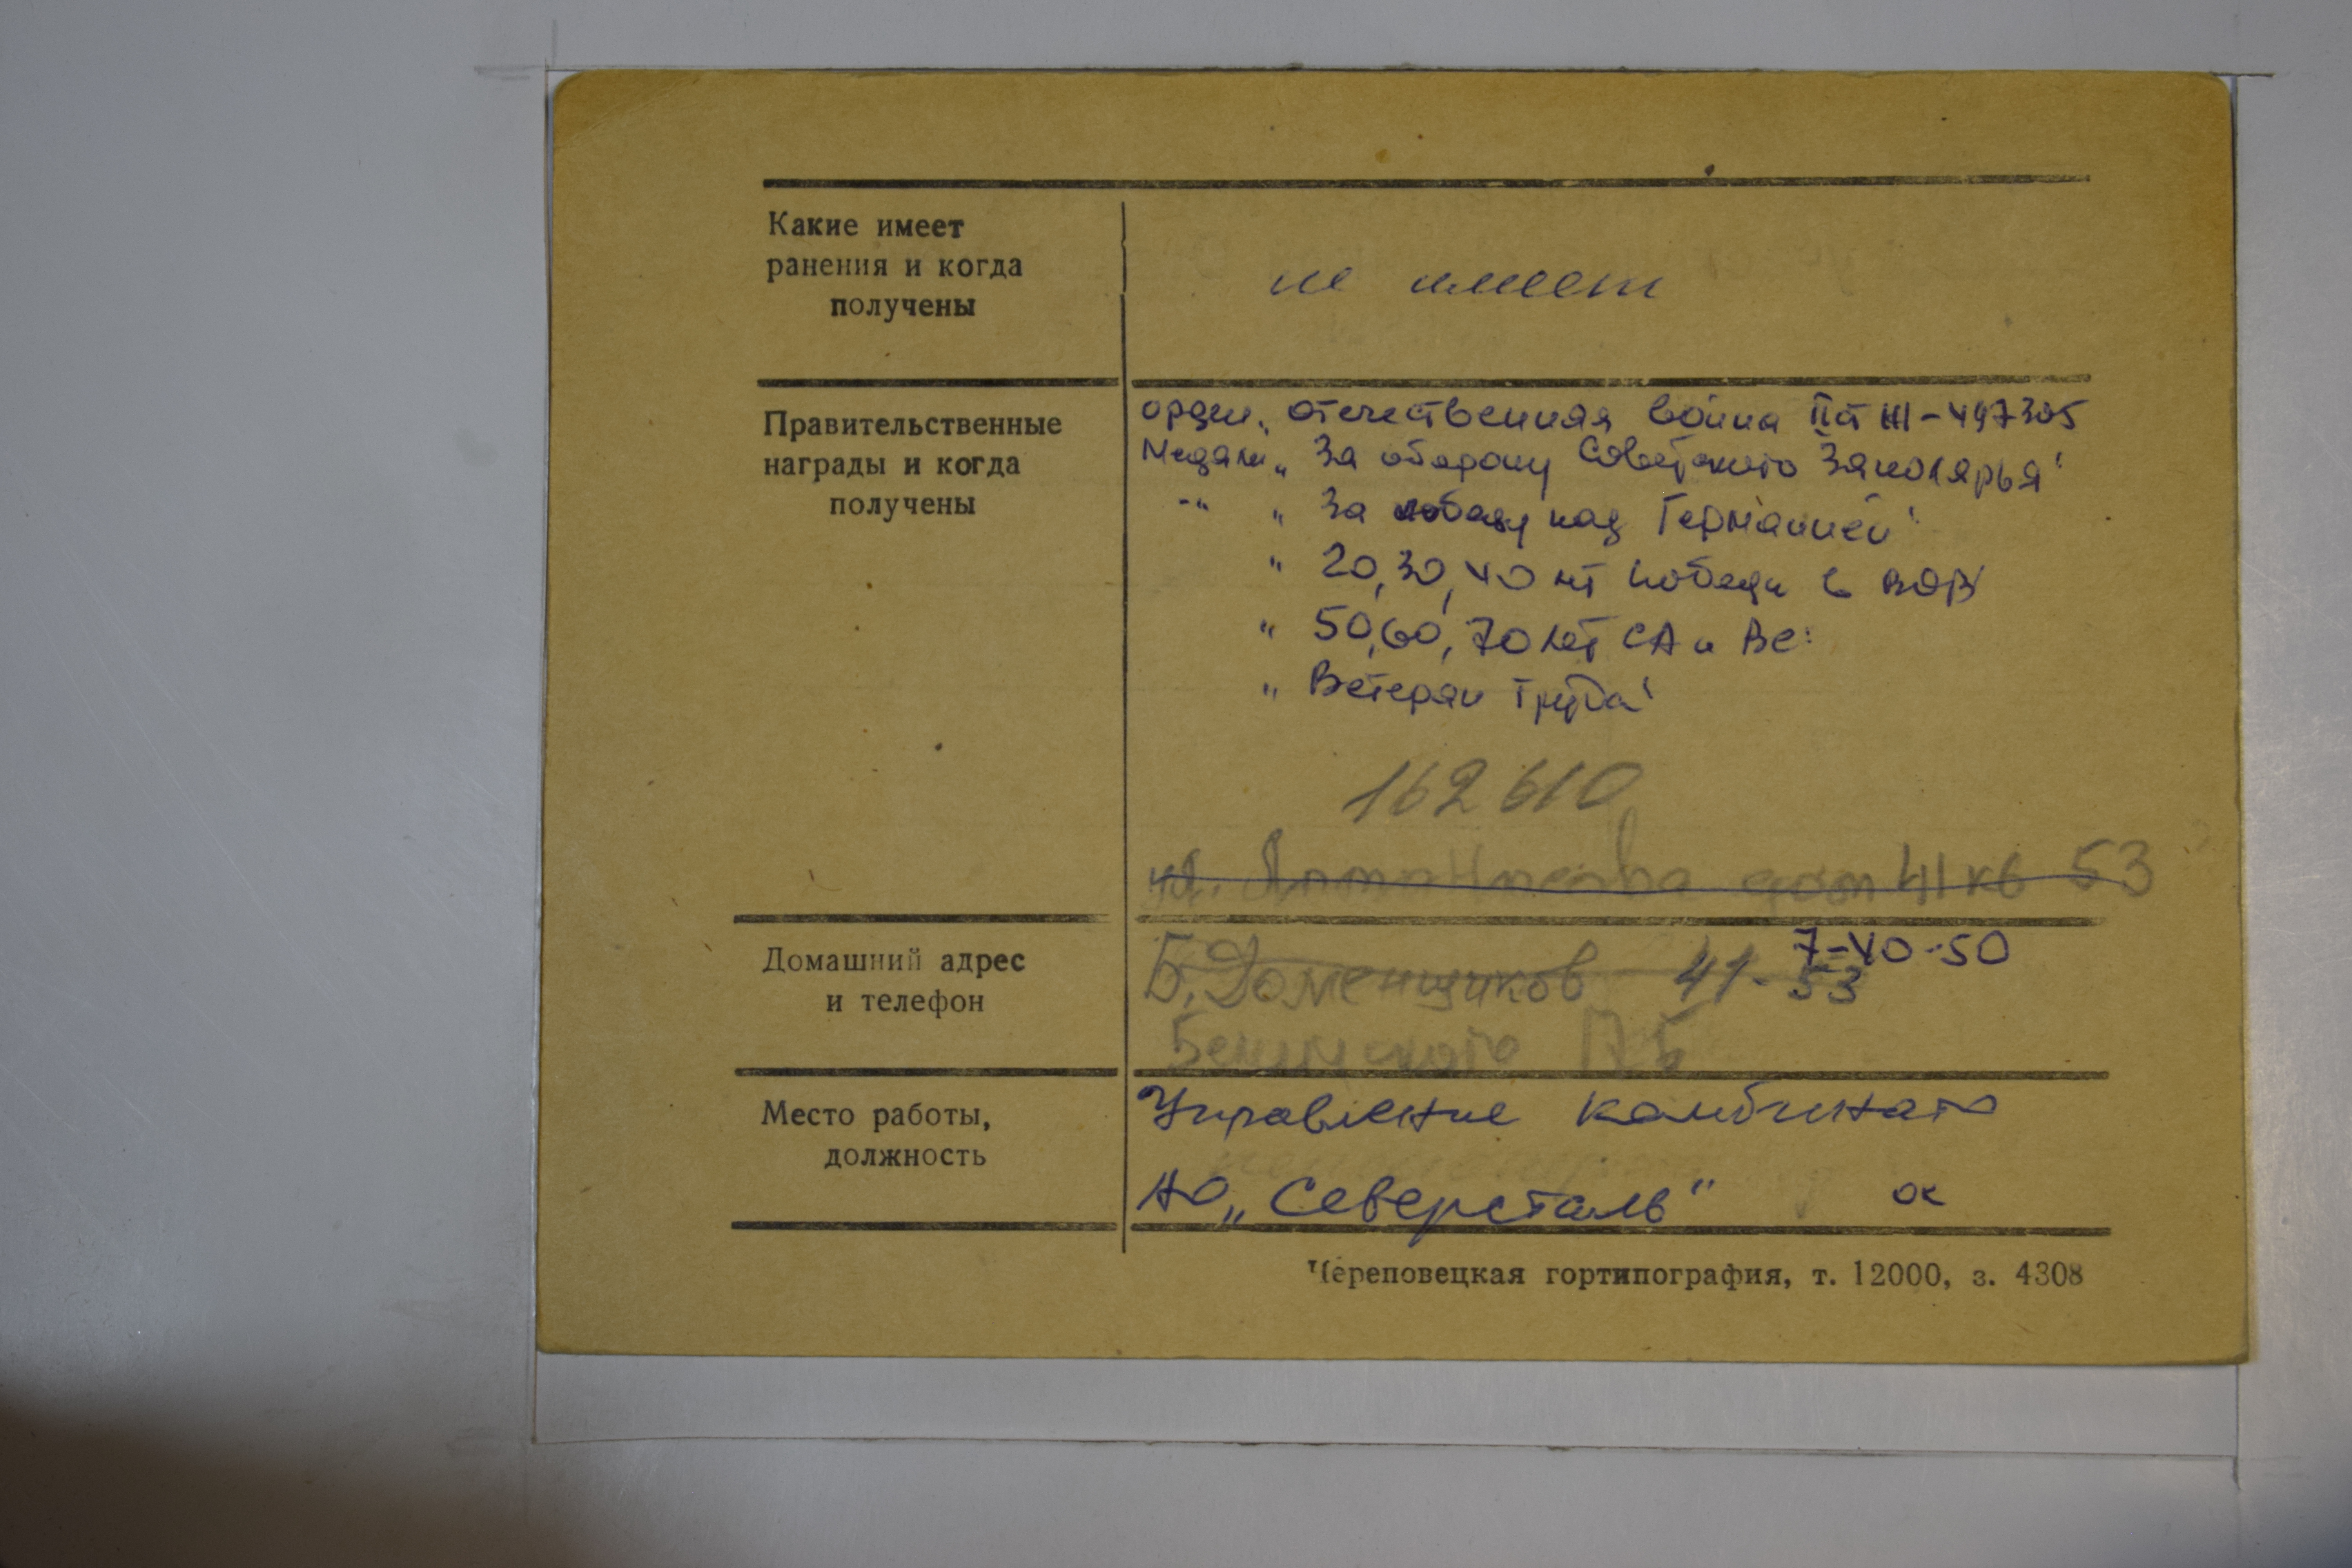 Какие имеет
ранения и когда
получены
не имеет
Правительственные
награды и когда
получены
орден „ Отечественная война II ст № - 497305
Медали „ За оборону Советского Заполярья"
-"- „ За победу над Германией"
„ 20, 30, 40 лет победы в ВОВ
„ 50, 60, 70 лет СА и ВС
„ Ветеран труда"
162610
ул. дом 41 кв 53
Домашний адрес
и телефон
7-40-50
Б. Доменщиков 41-53
Место работы,
должность
Управление комбината
АО „Северсталь" ок
Череповецкая гортипография, т. 12000, з. 4308